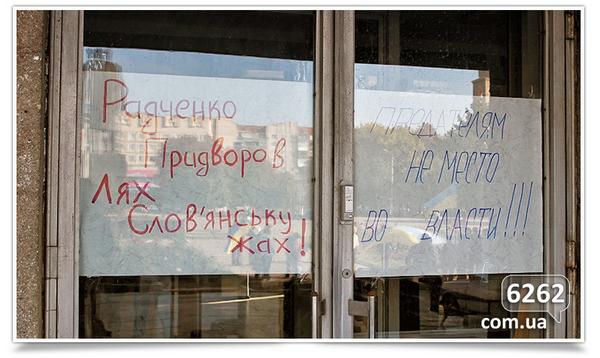 Радченко
Придворов
Лях
Слов'янську
жах!
ПРЕДАТЕЛЯМ
НЕ МЕСТО
ВО ВЛАСТИ!!!
6262
com.ua